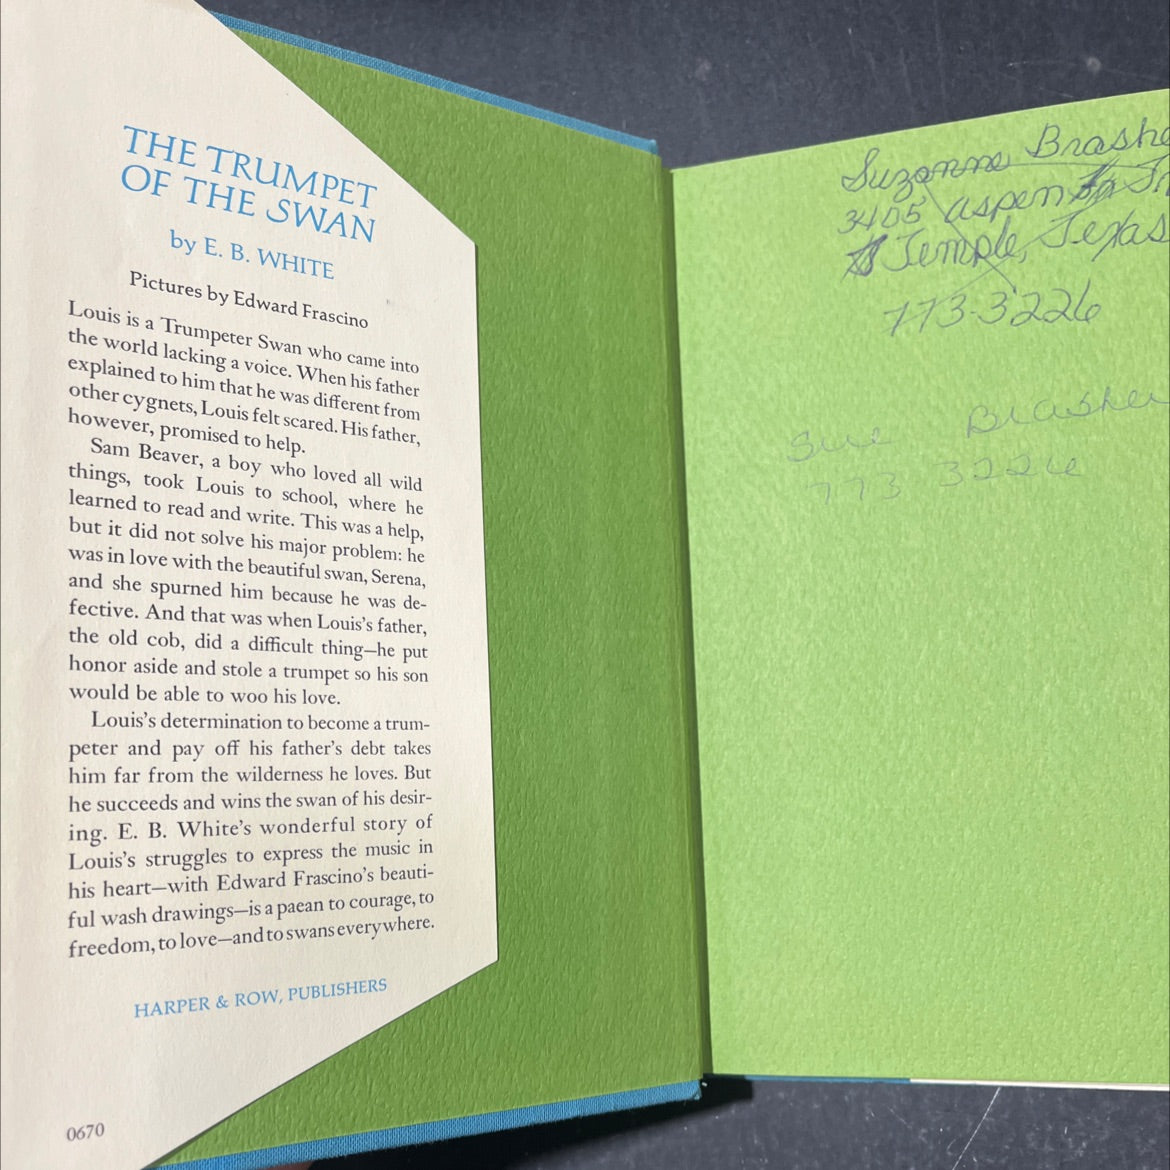 THE TRUMPET
OF THE SWAN
by E. B. WHITE
Pictures by Edward Frascino
Louis is a Trumpeter Swan who came into
the world lacking a voice. When his father
explained to him that he was different from
other cygnets, Louis felt scared. His father,
however, promised to help.
Sam Beaver, a boy who loved all wild
things, took Louis to school, where he
learned to read and write. This was a help,
but it did not solve his major problem: he
was in love with the beautiful swan, Serena,
and she spurned him because he was de-
fective. And that was when Louis's father,
the old cob, did a difficult thing—he put
honor aside and stole a trumpet so his son
would be able to woo his love.
Louis's determination to become a trum-
peter and pay off his father's debt takes
him far from the wilderness he loves. But
he succeeds and wins the swan of his desir-
ing. E. B. White's wonderful story of
Louis's struggles to express the music in
his heart—with Edward Frascino's beauti-
ful wash drawings—is a paean to courage, to
freedom, to love—and to swans everywhere.
HARPER & ROW, PUBLISHERS
0670
Suzanne Brashe
3405 Aspen
Temple, Texas
773-3226
Sue Brasher
773 3226